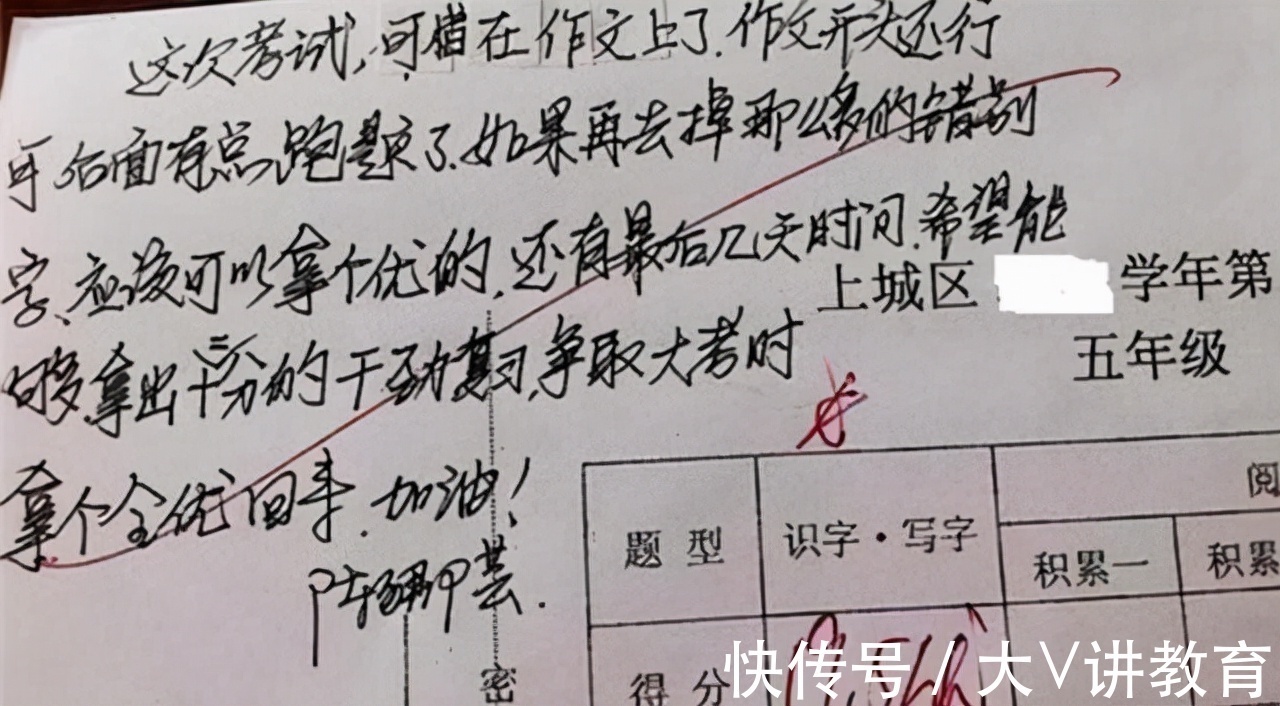 这次考试，可惜在作文上了.作文开头还行
可后面有点跑题了.如果再去掉那么多的错别
字、应该可以拿个优的.还有最后几天时间.希望能
够拿出十二分的干劲复习,争取大考时
拿个全优回来.加油！
上城区 学年第
五年级
题 型
识字·写字
阅
积累一
积累
得 分
密
快传号 / 大V讲教育